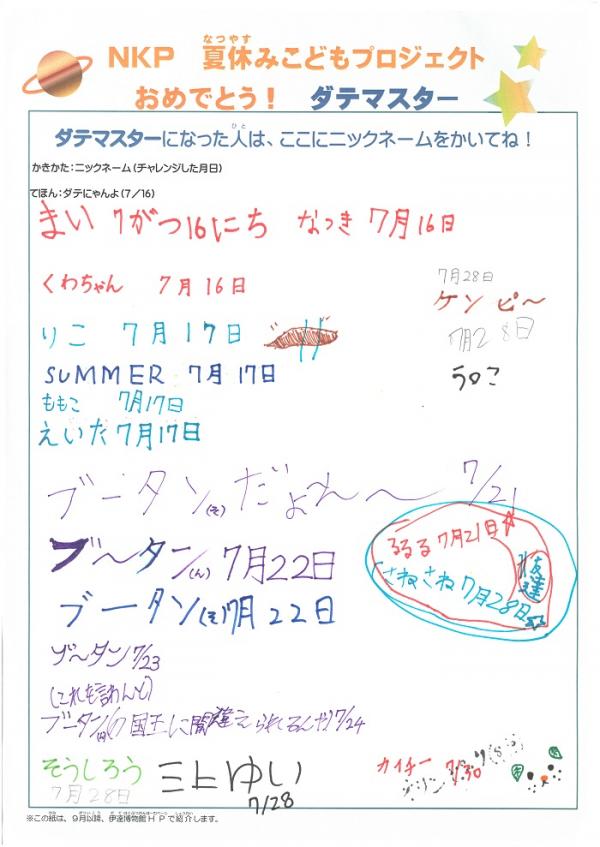 なつやす
NKP 夏休みこどもプロジェクト
おめでとう! ダテマスター
ダテマスターになった人は、ここにニックネームをかいてね!
ひと
かきかた:ニックネーム(チャレンジした月日)
てほん:ダテにゃんよ(7/16)
まい 7がつ16にち なつき 7月16日
くわちゃん 7月16日
7月28日
ケンピ～
りこ 7月17日
7月28日
SUMMER 7月17日
うのこ
ももこ 7月17日
えいた 7月17日
ブータン(そ)だよ～ 7/21
るるる 7月21日
さねさね 7月28日
友達
ブ～タン(ん) 7月22日
ブータン(そ)7月22日
ブ～タン 7/23
(これも言わんと)
ブータンの国王に間違えられてるんや!7/24
そうしろう
7月28日
三上ゆい
7/28
カイチー 7/30
※この紙は、9月以降、伊達博物館HPで紹介します。